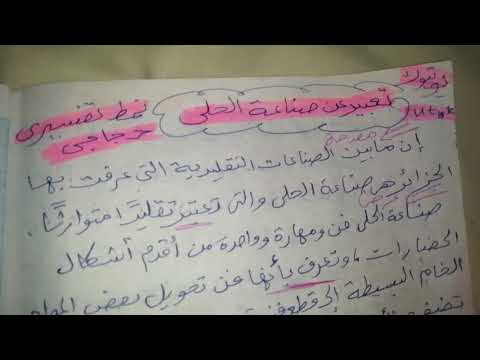 يوتيوب
تعبير عن صناعة الحلي نمط تفسيري
حجاجي
إن ما بين الصناعات التقليدية التي عرفت بها
الجزائر هي صناعة الحلي والتي تعتبر تقليدًا متوارثًا.
صناعة الحلي فن ومهارة وواحدة من أقدم أشكال
الحضارات، وتعرف بأنها فن تحويل بعض المواد
الخام البسيطة إلى قطع